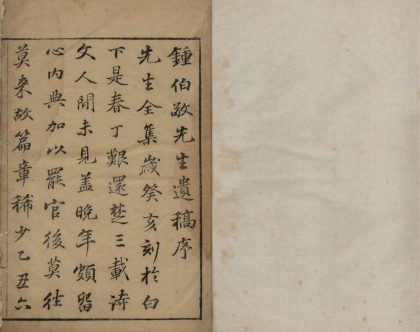 鍾伯敬先生遺稿序
先生全集歲癸亥刻於白
下是春丁艱還楚三載詩
文人間未見盖晚年頗留
心內典加以罷官後莫往
莫來故篇章稀少乙丑六